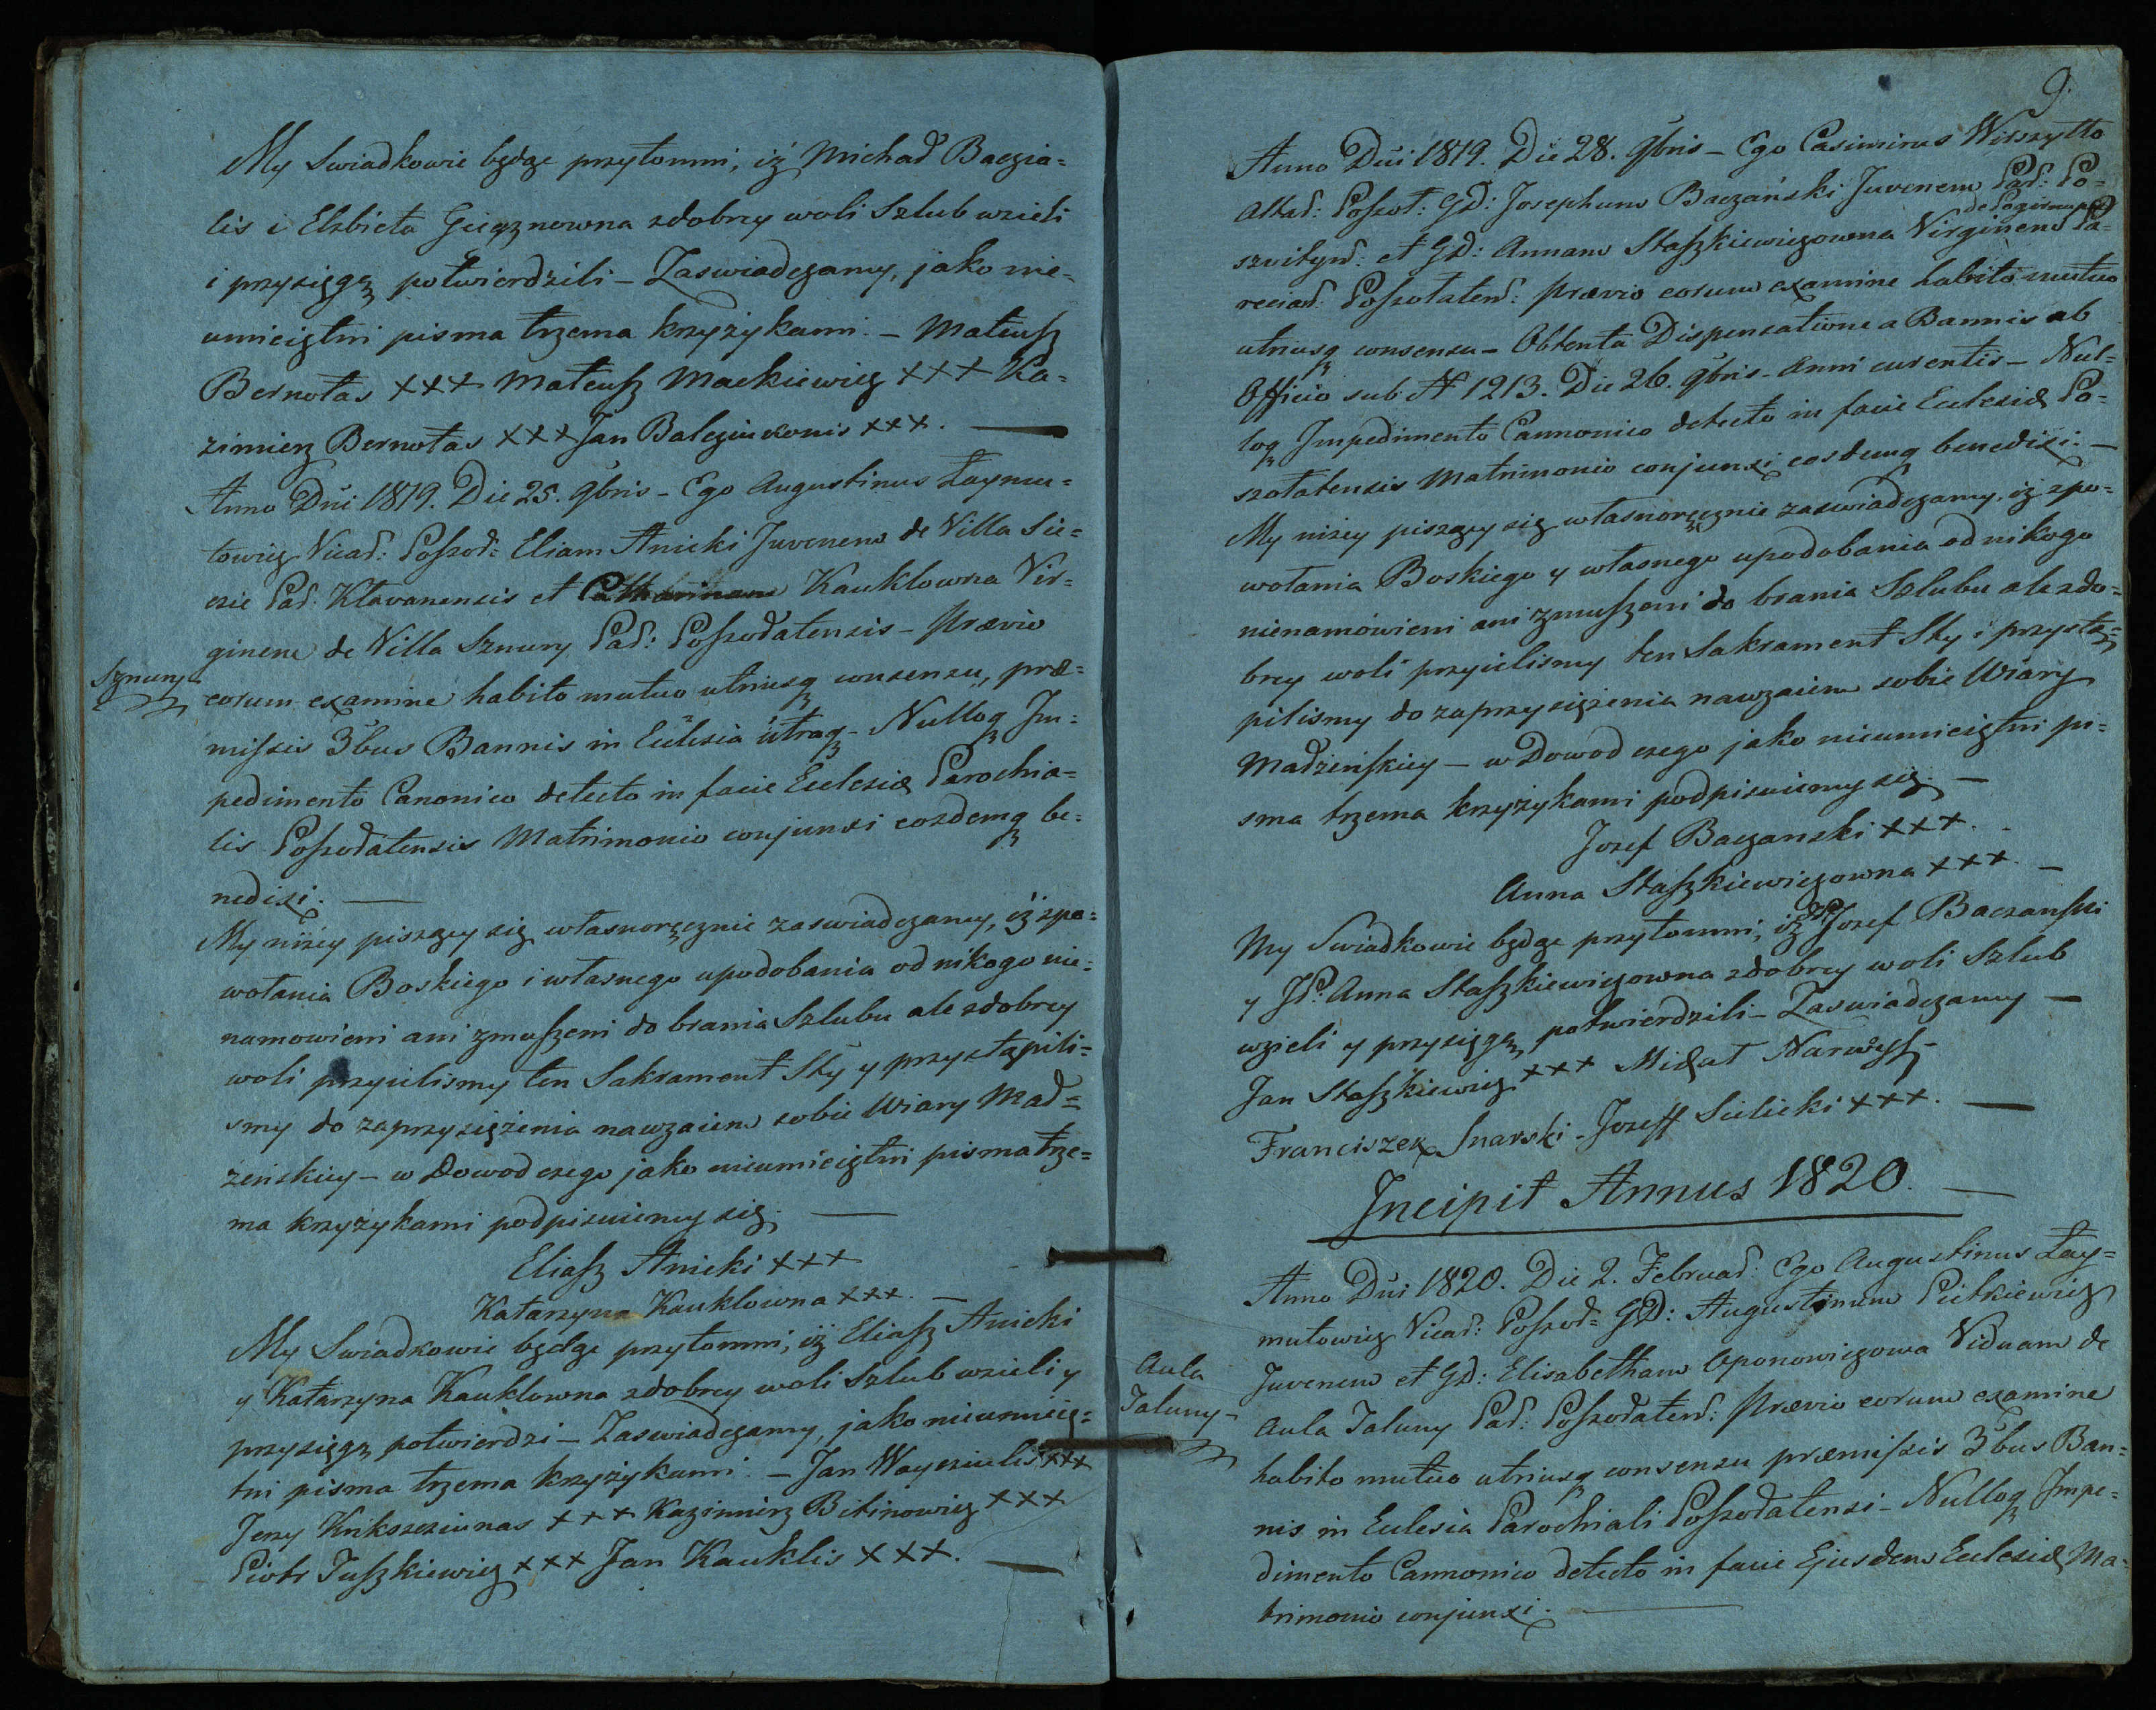 My Swiadkowie będąc przytomni, iż Michał Baczia=
lis i Elzbieta Gieyznowna zdobrey woli Szlub wzieli
i przysięgą potwierdzili – Zaswiadczamy, jako nie=
umieiętni pisma trzema krzyżykami. – Mateusz
Bernotas +++ Mateusz Mackiewicz +++ Ka=
zimierz Bernotas +++ Jan Balcziukonis +++. —
Anno Dni 1819. Die 25. 9bris – Ego Augustinus Łaymu=
towicz Vicar: Poszod= Eliam Anicki Juvenem de Villa Sie=
cie Par. Kławanensis et Catharinam Kauklowna Vir=
ginem de Villa Sznury Par: Poszodatensis – Prævio
Sznury –
eorum examine habito mutuo utriusq consensu, præ=
missis 3bus Bannis in Eclesia utraq – Nulloq Im=
pedimento Canonico detecto in facie Eclesiæ Parochia=
lis Poszodatensis Matrimonio conjunxi eosdemq be=
nedixi. —
My niżey piszący się własnoręcznie zaswiadczamy, iż zpo=
wołania Boskiego i własnego upodobania od nikogo nie=
namowieni ani zmuszeni do brania Szlubu ale zdobrey
woli przyielismy ten Sakrament Sty y przystąpili=
smy do zaprzysiężenia nawzaiem sobie Wiary Mał=
żeńskiey – w Dowod czego jako nieumieiętni pisma trze=
ma krzyżykami podpisuiemy się. —
Eliasz Anicki +++
Katarzyna Kauklowna +++. —
My Swiadkowie będąc przytomni, iż Eliasz Anicki
y Katarzyna Kauklowna zdobrey woli Szlub wzieli y
przysięgą potwierdzi – Zaswiadczamy, jako nieumieię=
tni pisma trzema krzyżykami. – Jan Wayciulis +++
Jerzy Knikszcziunas +++ Kazimierz Bitinowicz +++
Piotr Juszkiewicz +++ Jan Kauklis +++. —
9.
Anno Dni 1819. Die 28. 9bris – Ego Casimirus Wiszytto
Altar: Poszot: GD: Josephum Baczański Juvenem Par: Po=
szwityn: et GD: Annam Staszkiewiczowna Virginem Pa=
reciad: Poszotaten: Prævio eorum examine habito mutuo
utriusq consensu – Obtenta Dispensatione a Bannis ab
Officio sub N 1213. Die 26. 9bris Anni curentis – Nul=
loq Impedimento Cannonico detecto in facie Eclesiæ Po=
szotatensis Matrimonio conjunxi eosdemq benedixi. —
My niżey piszący się własnoręcznie zaswiadczamy, iż zpo=
wołania Boskiego y własnego upodobania od nikogo
nienamówieni ani zmuszeni do brania Szlubu ale zdo=
brey woli przyielismy ten Sakrament Sty i przystą=
pilismy do zaprzysiężenia nawzaiem sobie Wiary
Małżeńskiey – w Dowod czego jako nieumieiętni pi=
sma trzema krzyżykami podpisuiemy się. —
Jozef Baczanski +++.
Anna Staszkiewiczowna +++. —
My Swiadkowie będąc przytomni, iż JP. Jozef Baczański
y JP. Anna Staszkiewiczowna zdobrey woli Szlub
wzieli y przysięgą potwierdzili – Zaswiadczamy —
Jan Staszkiewicz +++ Michał Narwysz –
Franciszek Snarski – Jozeff Sielicki +++. —
Incipit Annus 1820. —
Anno Dni 1820. Die 2. Februar: Ego Augustinus Łay=
mutowicz Vicar: Poszod= GD: Augustinum Pietkiewicz
Aula
Jaluny –
Juvenem et GD: Elisabetham Aponowiczowa Viduam de
Aula Jaluny Par: Poszodaten: Prævio eorum examine
habito mutuo utriusq consensu præmissis 3bus Ban=
nis in Eclesia Parochiali Poszodatensi – Nulloq Impe=
dimento Cannonico detecto in facie Ejusdem Eclesiæ Ma=
trimonio conjunxi. —